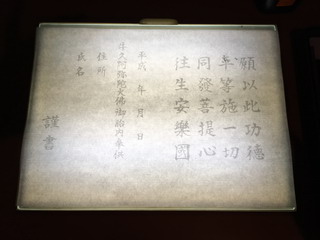 願以此功德
平等施一切
同發菩提心
往生安樂國
平成　年　月　日
牛久阿弥陀大佛御胎内奉納
住所
氏名
謹書